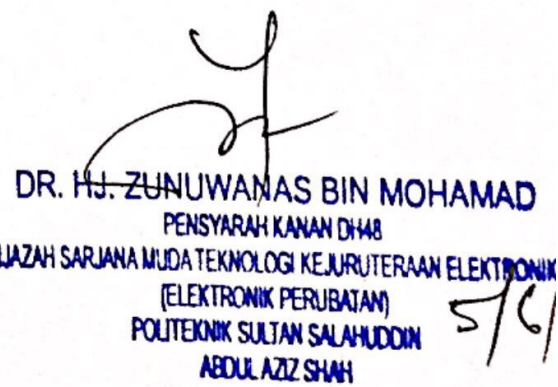 DR. HJ. ZUNUWANAS BIN MOHAMAD
PENSYARAH KANAN DH48
IJAZAH SARJANA MUDA TEKNOLOGI KEJURUTERAAN ELEKTRONIK
(ELEKTRONIK PERUBATAN)
POLITEKNIK SULTAN SALAHUDDIN
ABDUL AZIZ SHAH
5/6/